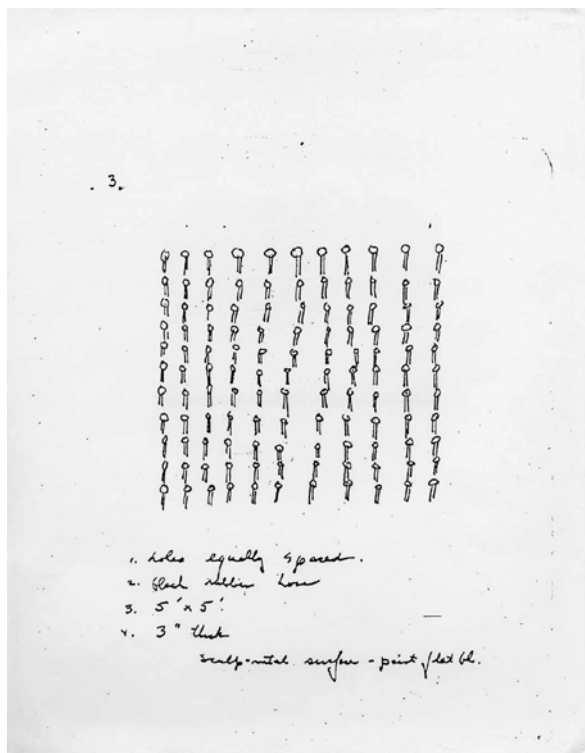 3.
1. holes equally spaced.
2. black rubber hose
3. 5' x 5'.
4. 3" thick
sculp-metal surface - paint flat bl.